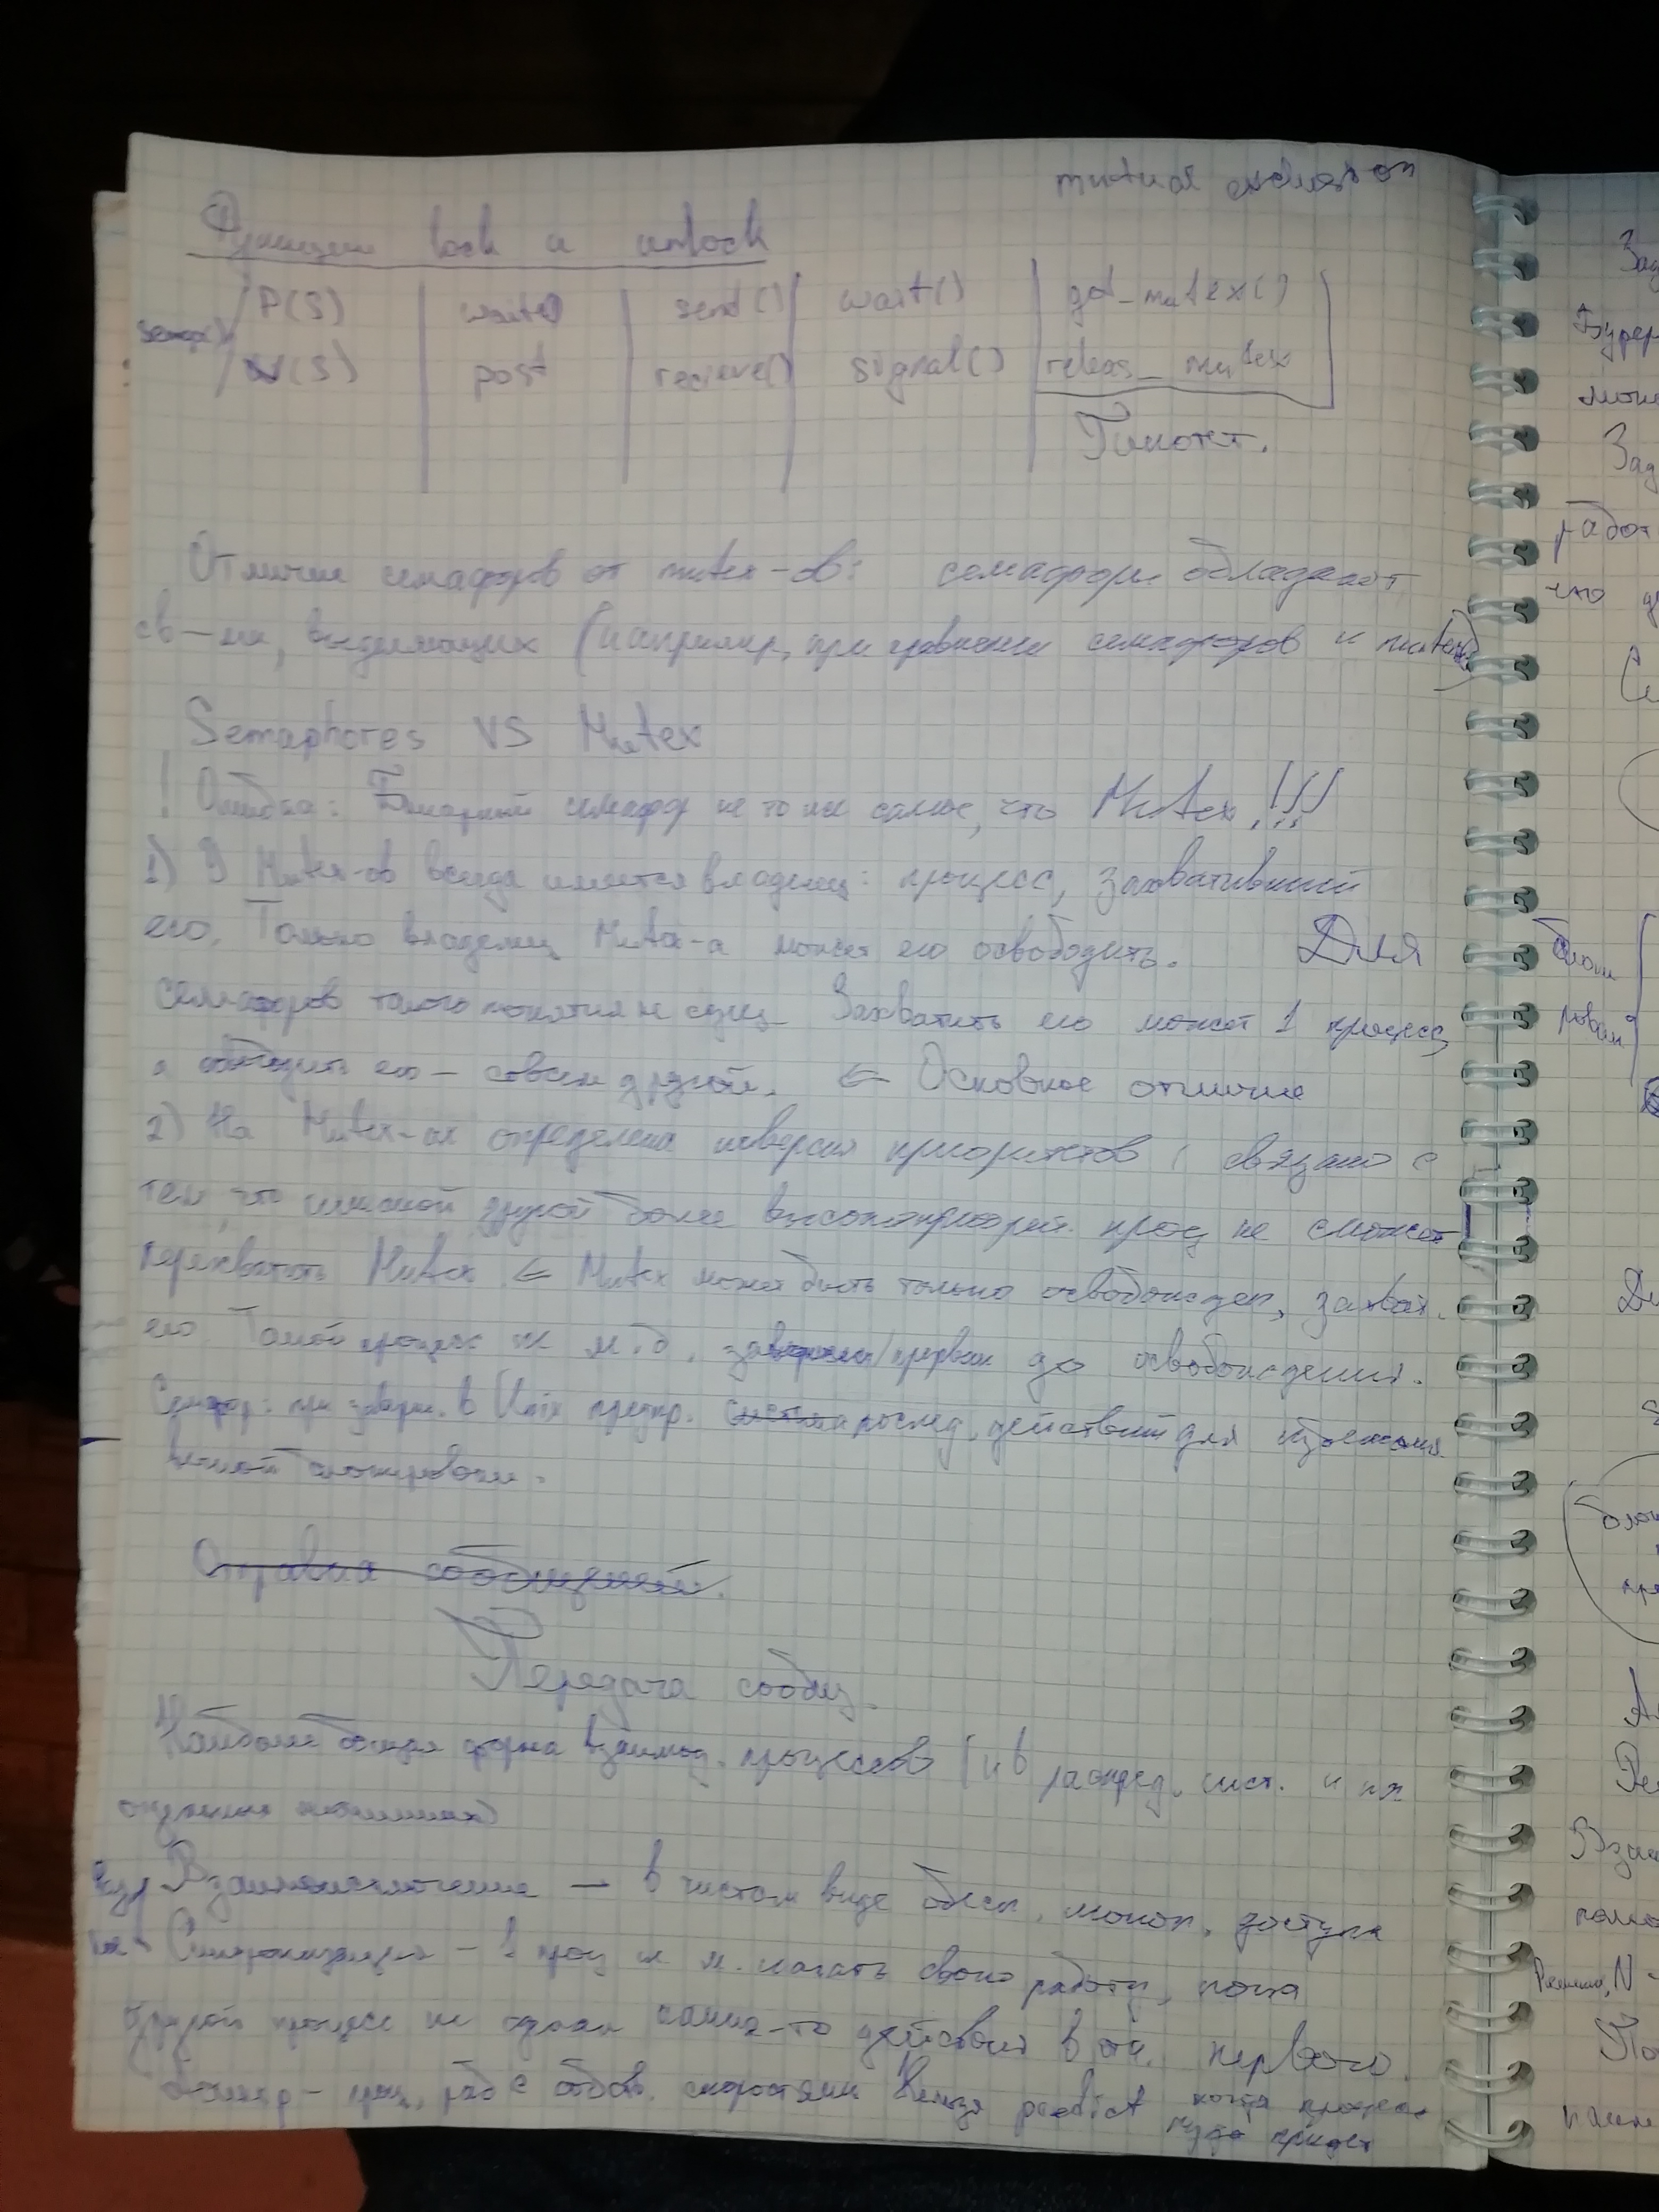 mutual exclusion
Функции lock и unlock
P(S) | wait() | send() | wait() | get_mutex()
V(S) | post | recieve() | signal() | releas_mutex
Гипотет.
Отличие семафоров от mutex-ов: семафоры обладают
св-ми, (например, при сравнении семафоров и mutex
Semaphores VS Mutex
! Ошибка: Бинарный семафор не то же самое, что Mutex!!!
1) У Mutex-ов всегда имеется владелец: процесс, захвативший
его. Только владелец Mutex-а может его освободить. Для
семафоров такого понятия не сущ. Захватить его может 1 процесс,
а освободить его – совсем другой. ⇐ Основное отличие
2) На Mutex-ах определена инверсия приоритетов, связано с
тем, что никакой другой более высокоприорит. проц не сможет
перехватить Mutex ⇐ Mutex может быть только освобожден, захват.
его. Такой процесс не м.б. завершен/прерван до освобождения.
Семафор: при заверш. в Unix предпр. послед. действий для
вечной блокировки.
Отправка сообщений.
Передача сообщ.
Наиболее общая форма взаимод. процессов (и в распред. сист. и на
отдельных машинах)
Взаимоисключение – в чистом виде обесп. моноп. доступа
Синхронизация – 1 проц н. м. начать свою работу, пока
другой процесс не сделал какие-то действия в от. первого.
проц. раб с собств. скоростями Нельзя predict когда процесс
куда придет
Зад
Зад
работ
что
блоки
ровани
Взаи